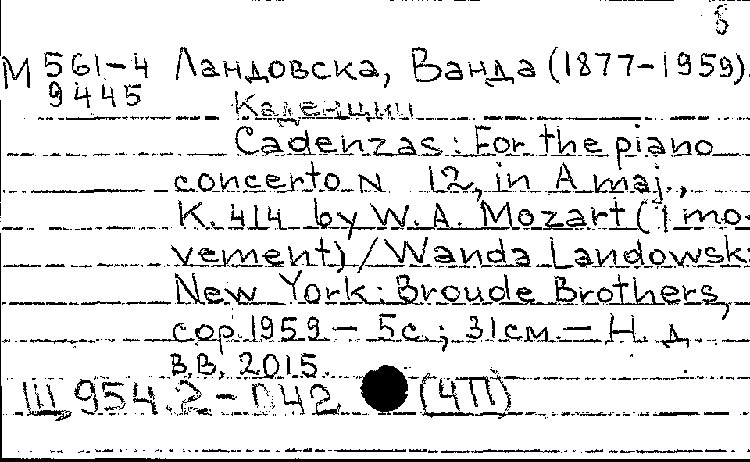 б
М 561-4 Ландовска, Ванда (1877-1959).
9445 Каденции
Cadenzas: For the piano
concerto N 12, in A maj.,
K. 414 by W. A. Mozart (1 mo-
vement) / Wanda Landowsk
New York: Broude Brothers,
cop. 1959 - 5с.; 31см. - Н. д.
В.В. 2015.
Щ 954.2-042 (4П)